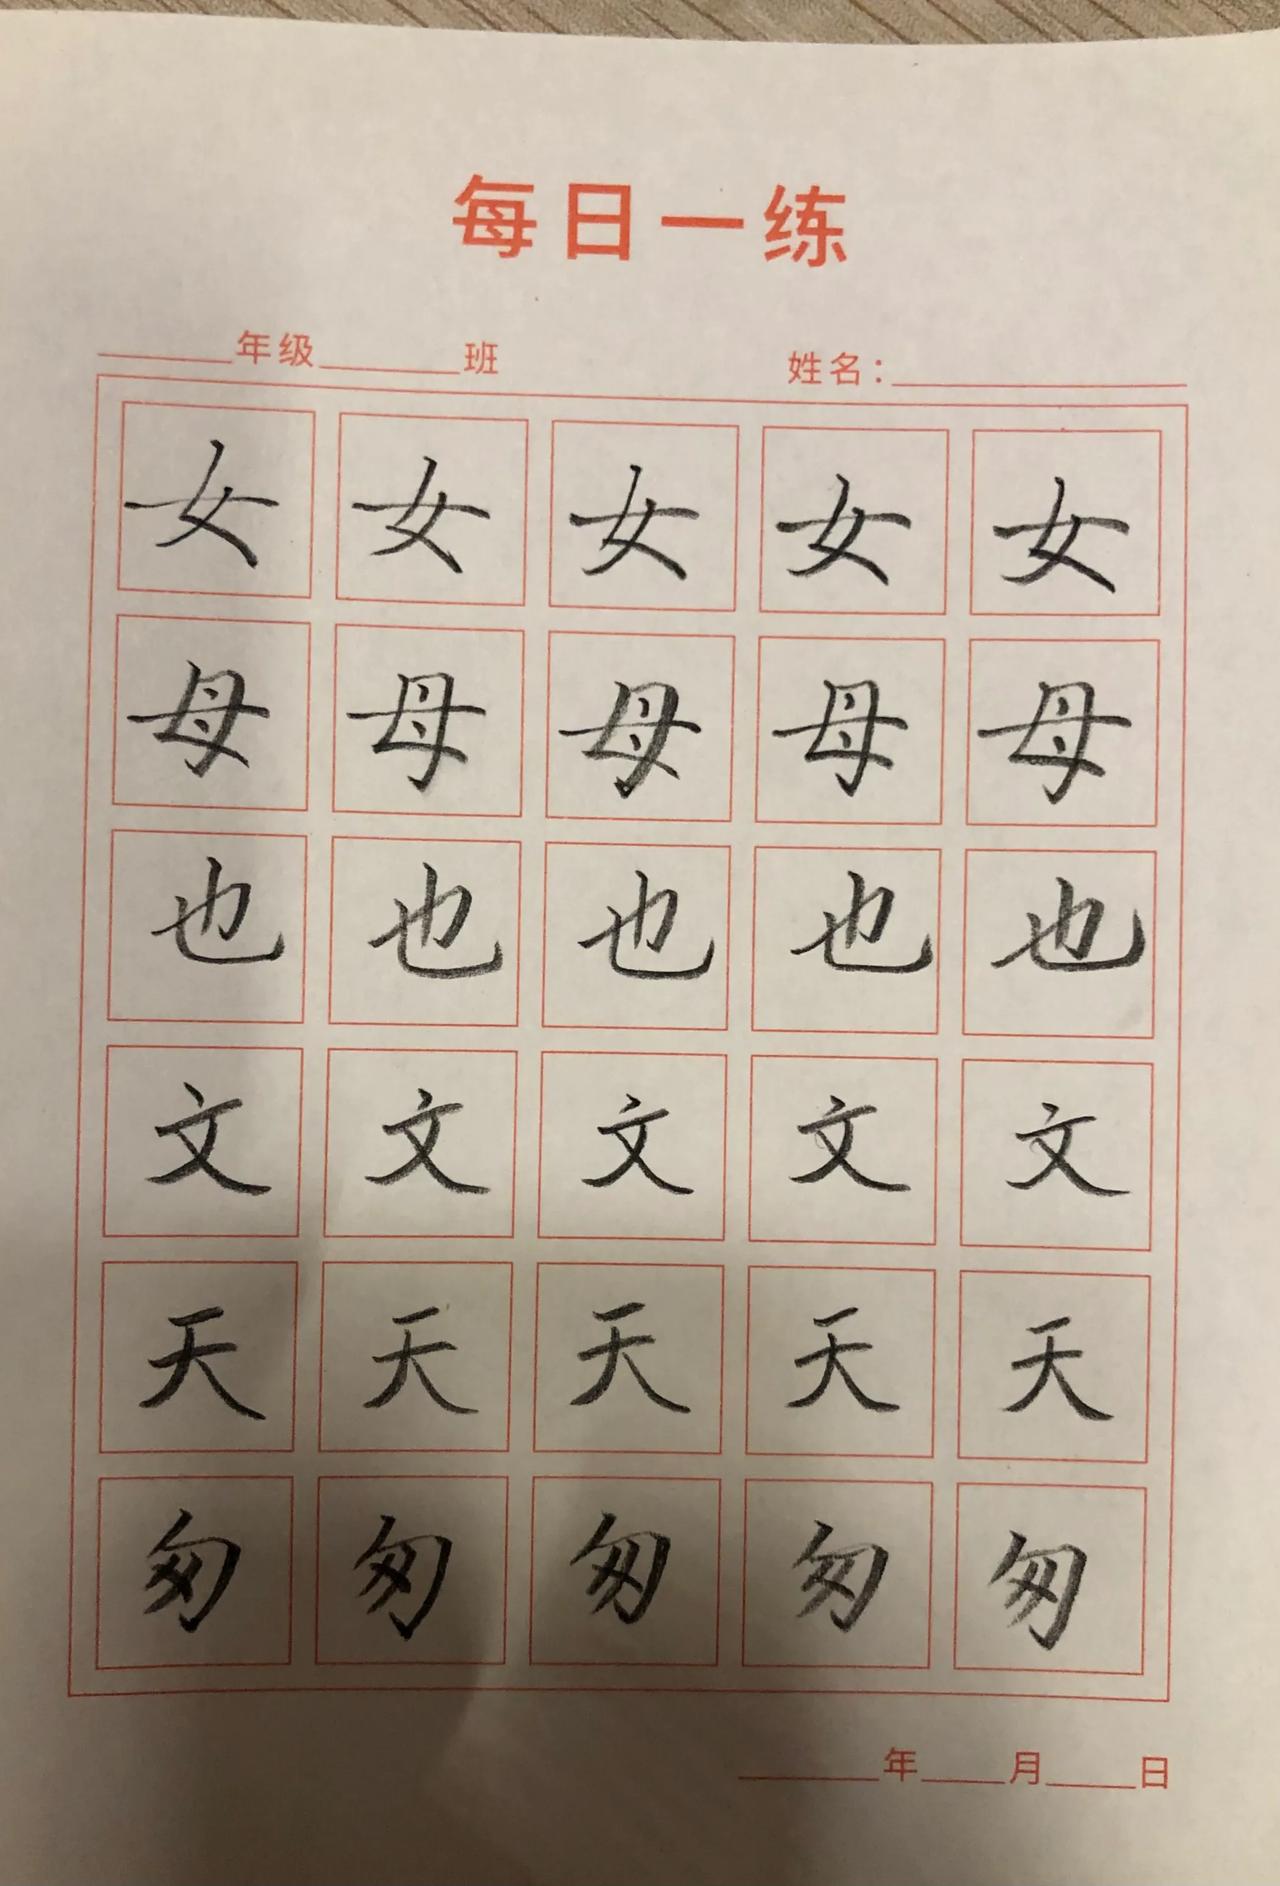 每日一练
____年级____班 姓名：________
女 女 女 女 女
母 母 母 母 母
也 也 也 也 也
文 文 文 文 文
天 天 天 天 天
匆 匆 匆 匆 匆
____年___月___日